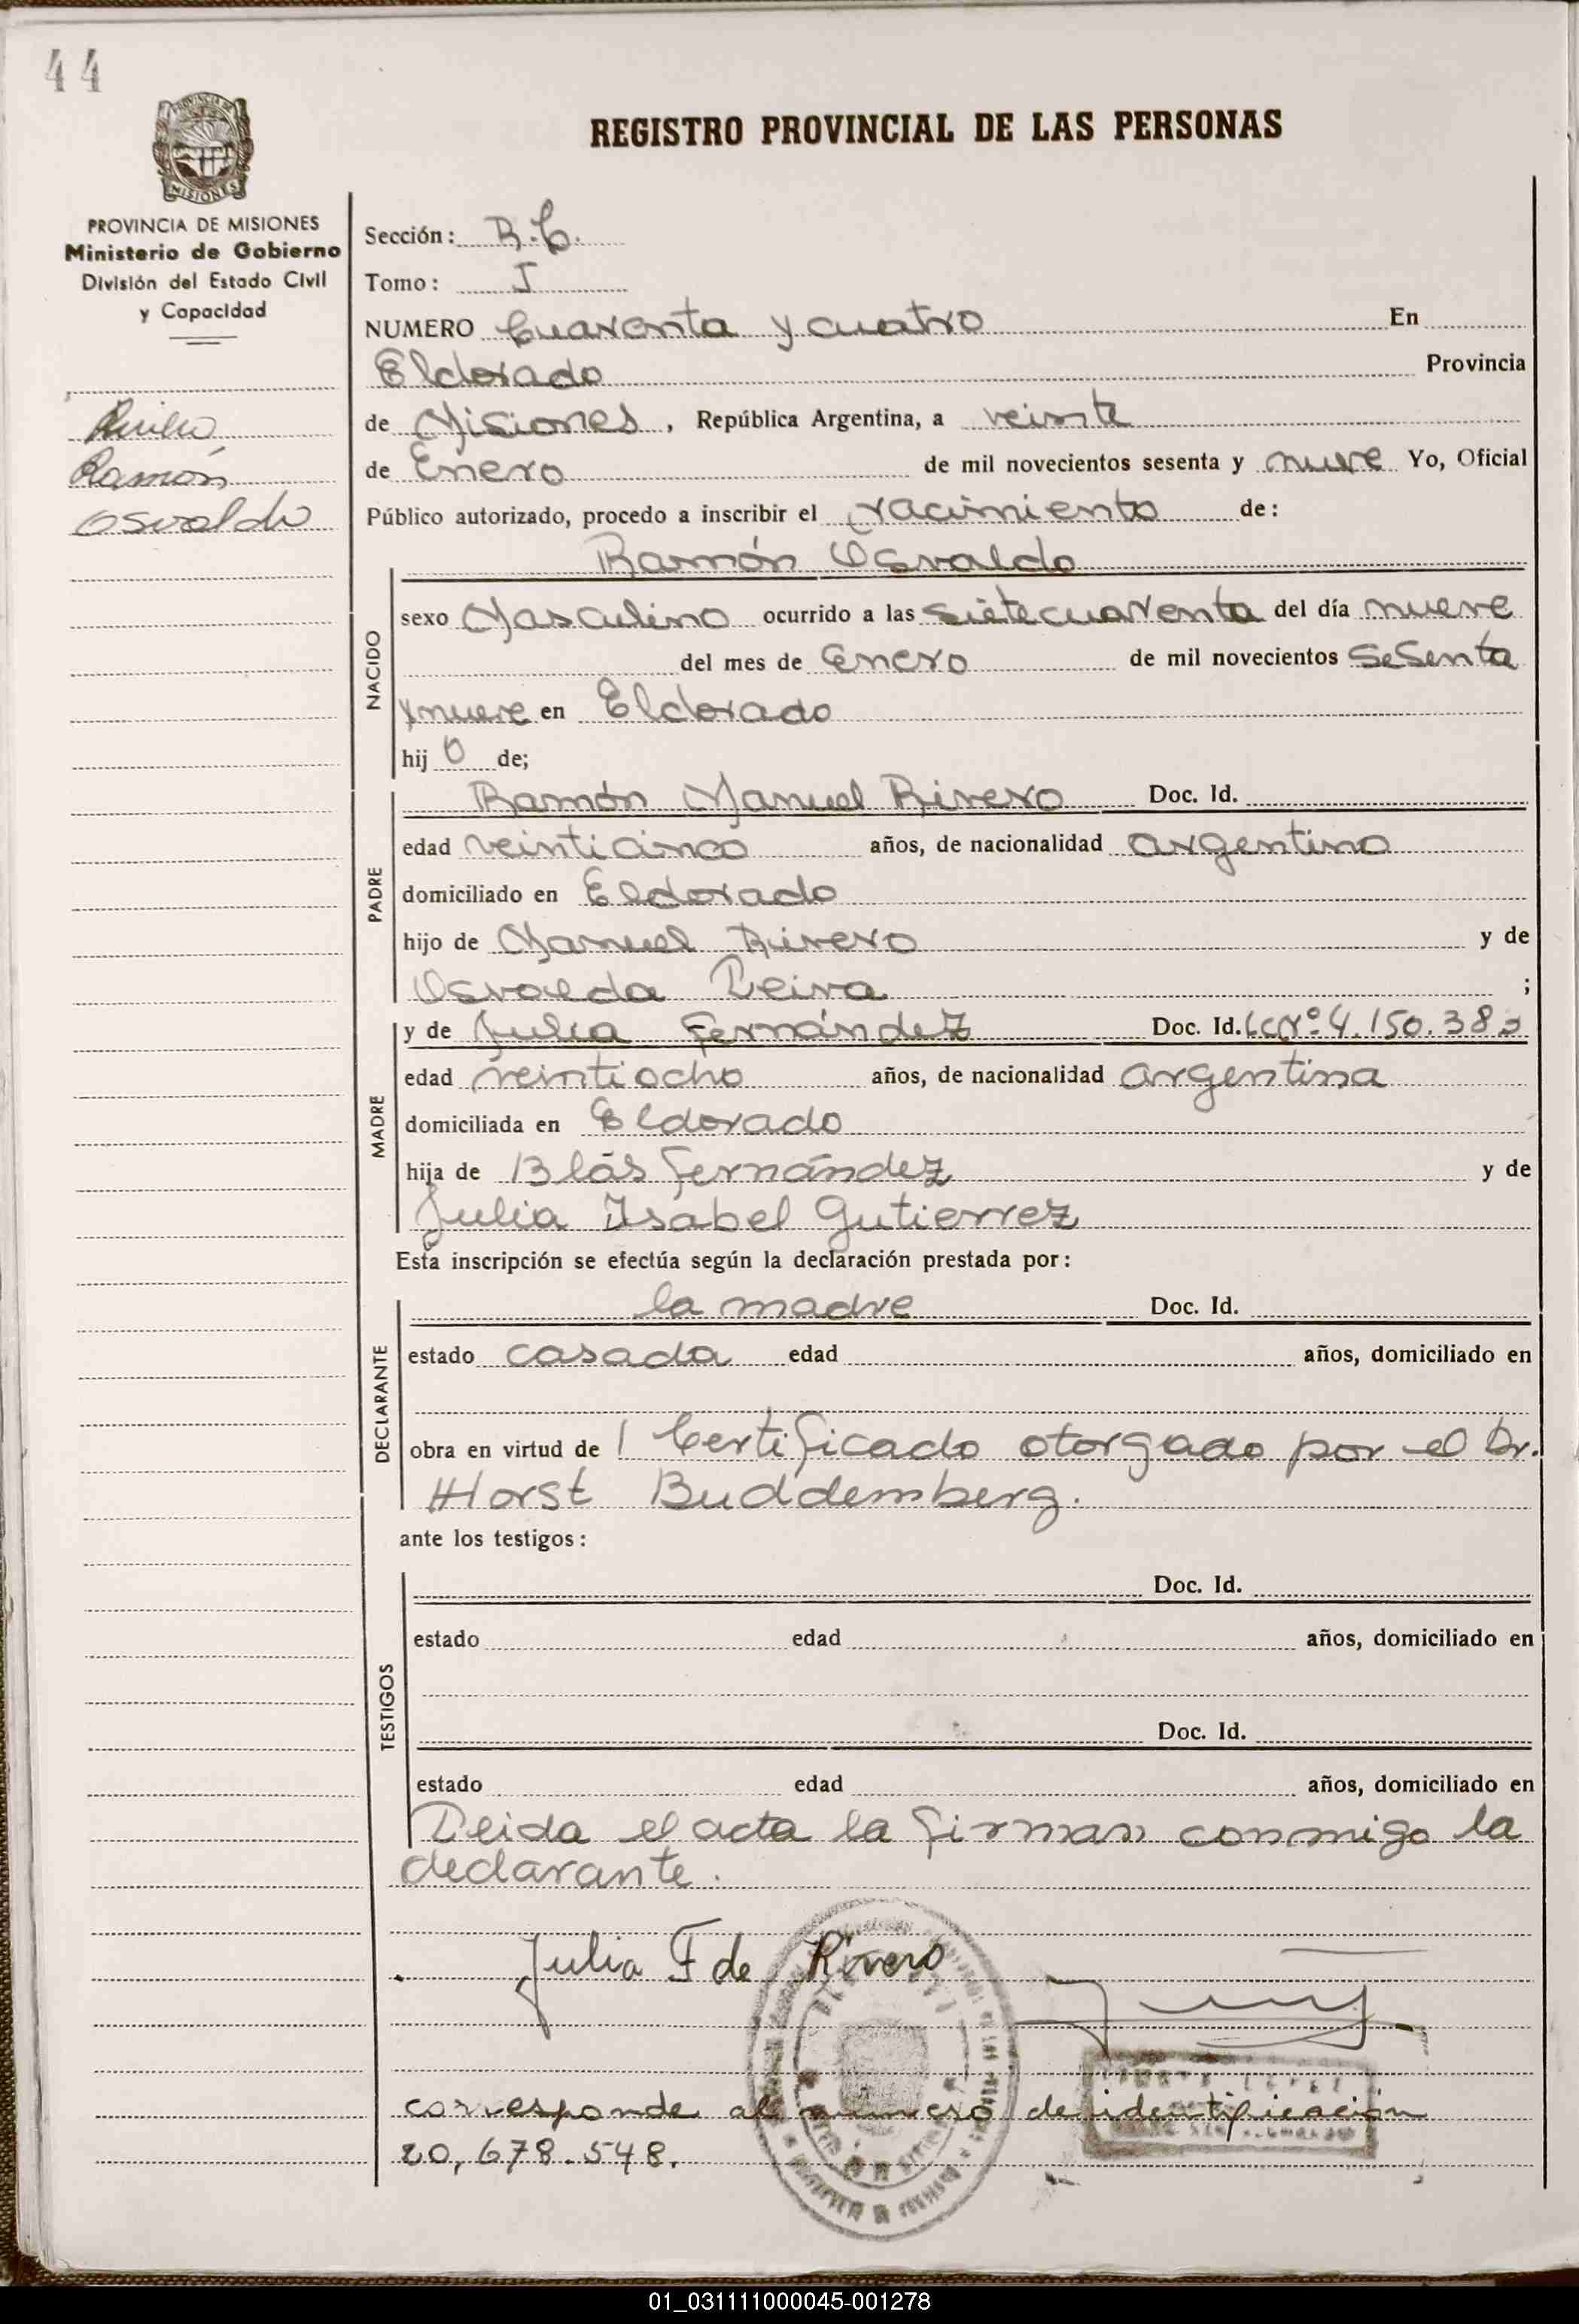 44
REGISTRO PROVINCIAL DE LAS PERSONAS
PROVINCIA DE MISIONES
Ministerio de Gobierno
División del Estado Civil
y Capacidad
Ramón
Osvaldo
Sección: R.C.
Tomo: I
NUMERO Cuarenta y cuatro En
Eldorado Provincia
de Misiones, República Argentina, a veinte
de Enero de mil novecientos sesenta y nueve Yo, Oficial
Público autorizado, procedo a inscribir el nacimiento de:
Ramón Osvaldo
NACIDO
sexo Masculino ocurrido a las siete cuarenta del día nueve
del mes de Enero de mil novecientos sesenta
y nueve en Eldorado
hij o de;
PADRE
Ramón Manuel Rivero Doc. Id.
edad veinticinco años, de nacionalidad argentino
domiciliado en Eldorado
hijo de Manuel Rivero y de
Osvalda Leiva ;
MADRE
y de Julia Fernández Doc. Id. LC Nº 4.150.38
edad veintiocho años, de nacionalidad argentina
domiciliada en Eldorado
hija de Blás Fernández y de
Julia Isabel Gutierrez
Esta inscripción se efectúa según la declaración prestada por:
DECLARANTE
la madre Doc. Id.
estado casada edad años, domiciliado en
obra en virtud de 1 Certificado otorgado por el Dr.
Horst Buddemberg.
ante los testigos:
TESTIGOS
Doc. Id.
estado edad años, domiciliado en
Doc. Id.
estado edad años, domiciliado en
Leida el acta la firman conmigo la
declarante.
Julia F de Rivero
corresponde al numero de identificación
20,678.548.
01_031111000045-001278